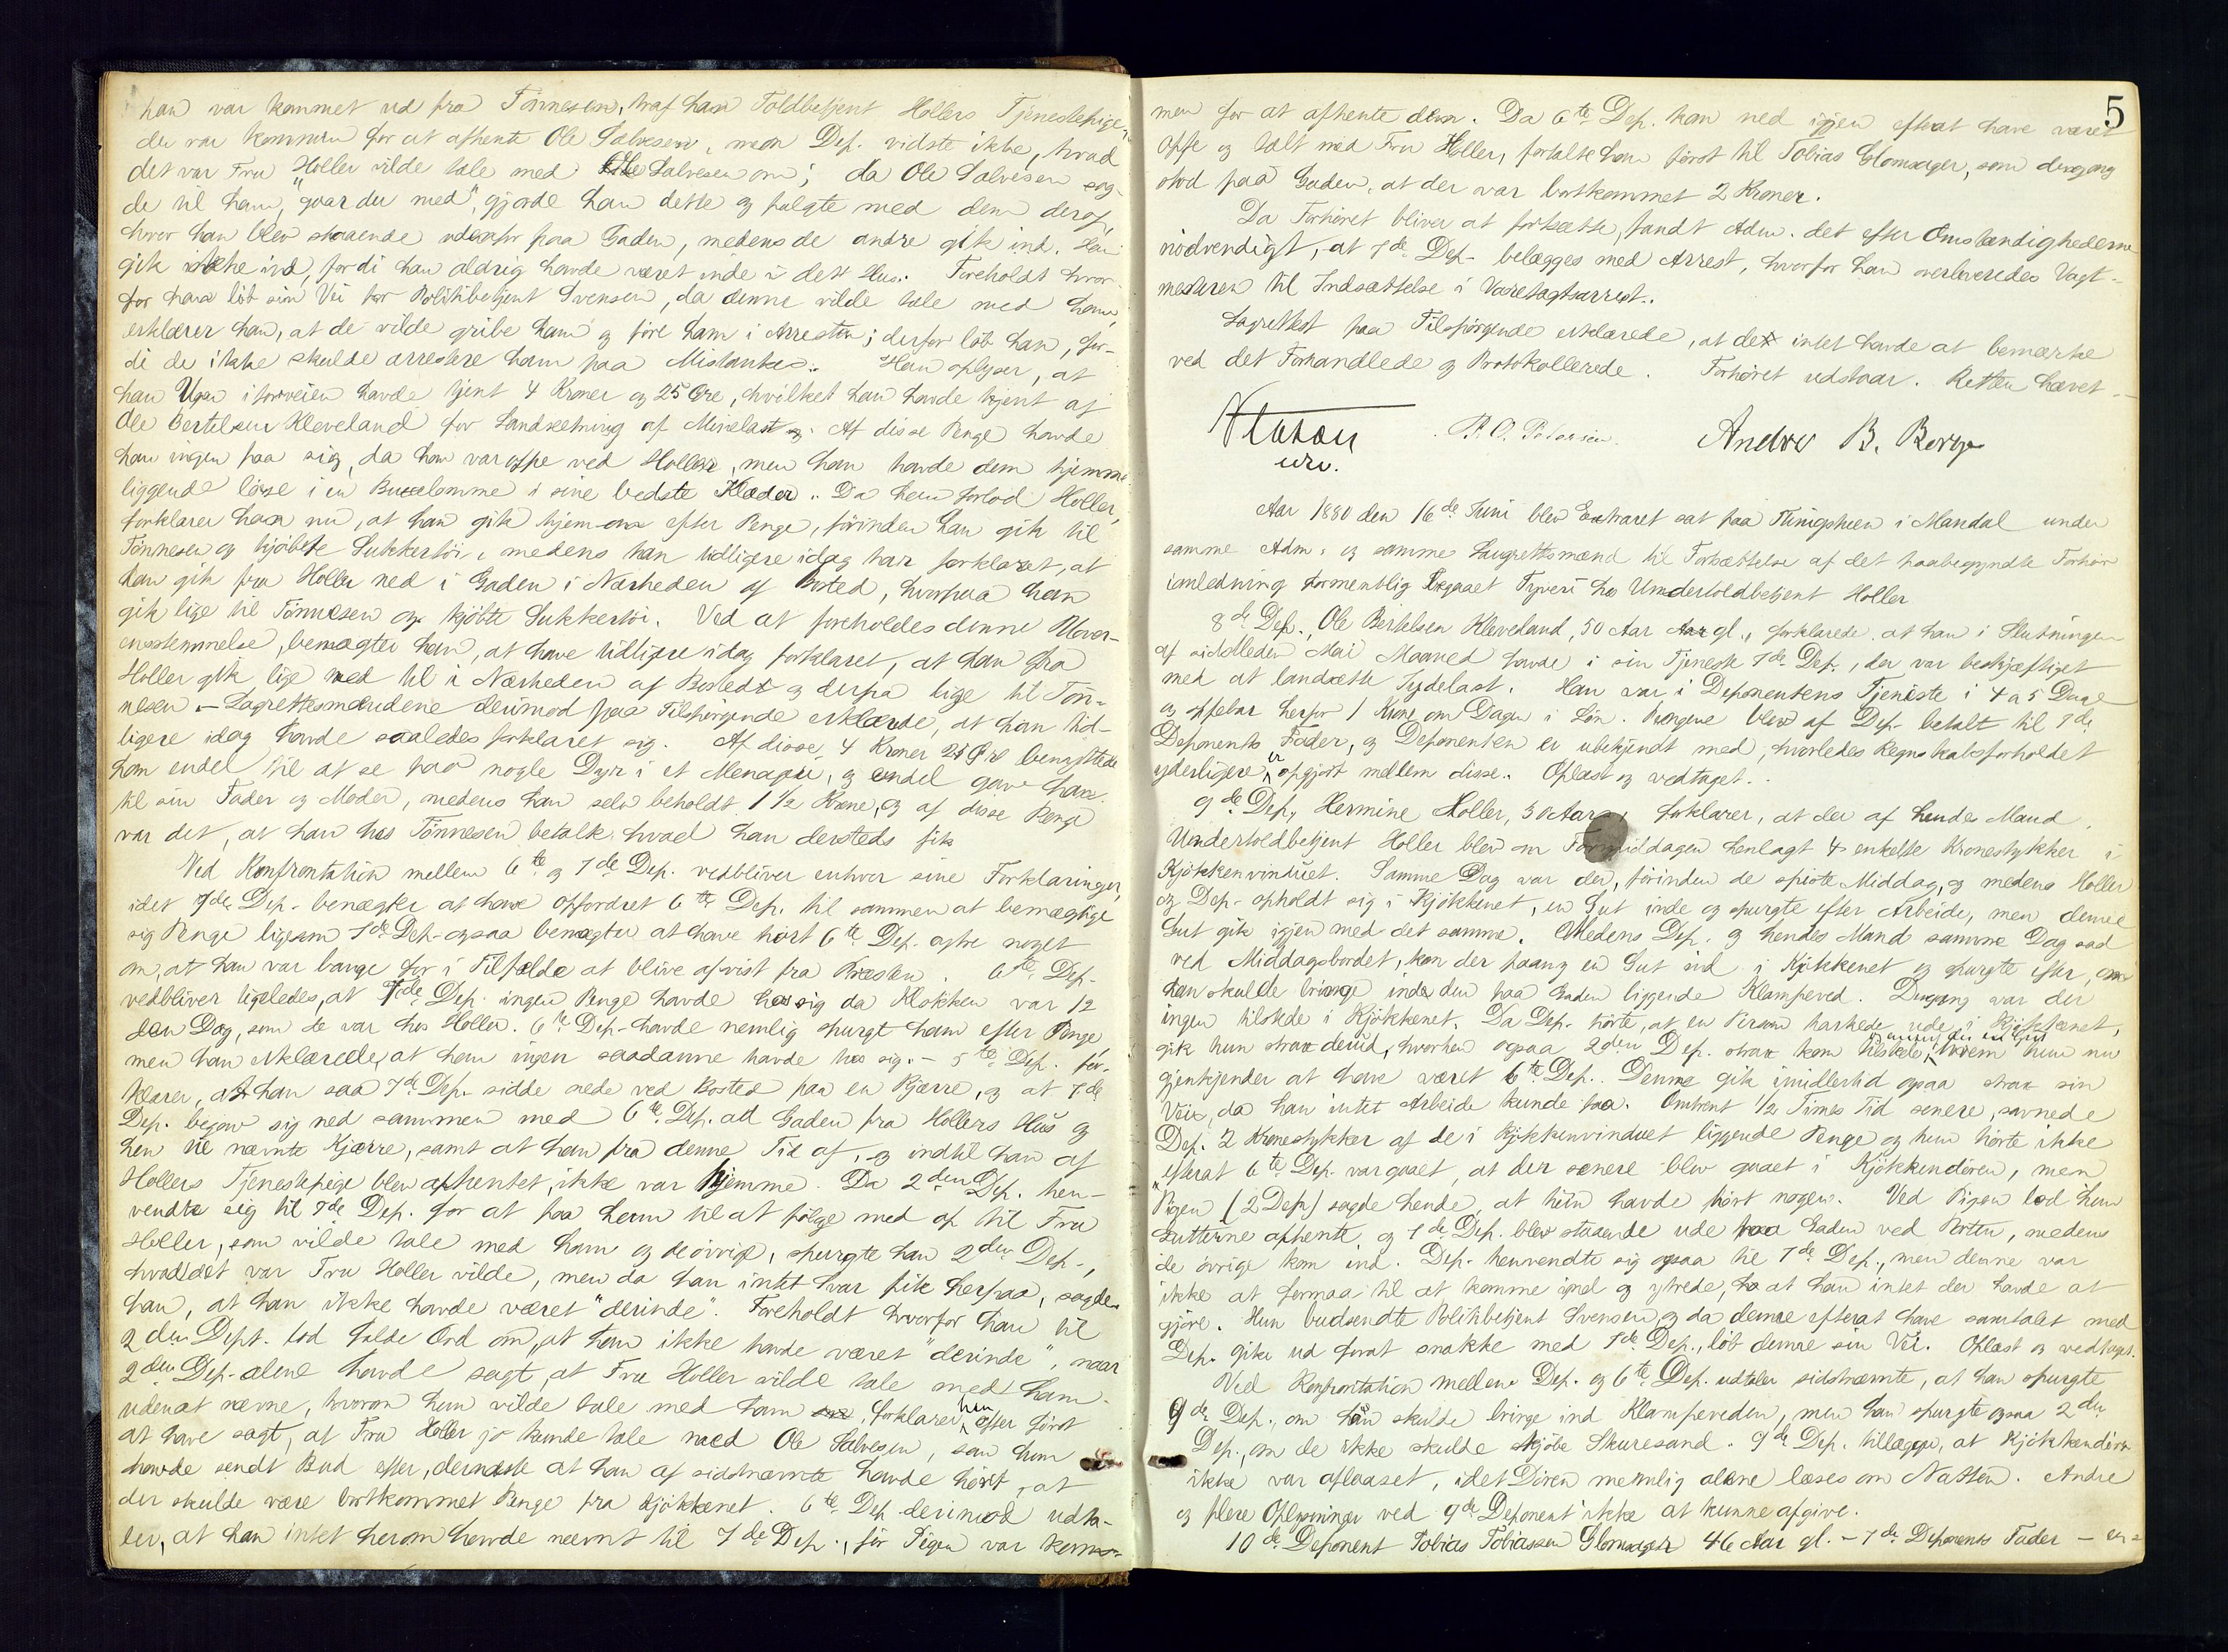 han var kommet ud fra Tönnesen, traf han Toldbetjent Hollers Tjenestepige,
der var kommen for at afhente Ole Salvesen, men Dep. vidste ikke, hvad
det var Fru Holler vilde tale med Ole Salvesen om; da Ole Salvesen sag-
de til ham, "gaar du med", gjorde han dette og fulgte med dem derop,
hvor han blev staaende udenfor paa Gaden, medens de andre gik ind. Han
gik ikke ind, fordi han aldrig havde været inde i det Hus. Foreholdt hvor-
for han löb sin Vei for Politibetjent Svensen, da denne vilde tale med ham,
erklærer han, at de vilde gribe ham og före ham i Arresten; derfor löb han, for-
di de ikke skulde arrestere ham paa Mistanke. Han oplyser, at
han Ugen iforveien havde tjent 4 Kroner og 25 Øre, hvilket han havde tjent af
Ole Bertelsen Kleveland for Landsetning af Minelast. Af disse Penge havde
han ingen paa sig, da han var oppe ved Hollers, men han havde dem hjemme
liggende löse i en Buxelomme i sine bedste Klæder. Da han forlod Holler,
forklarer han nu, at han gik hjem efter Penge, förinden han gik til
Tönnesen og kjöbte Sukkertöi, medens han tidligere idag har forklaret, at
han gik fra Holler ned i Gaden i Nærheden af Bosted, hvorpaa han
gik lige til Tönnesen og kjöbte Sukkertöi. Ved at foreholdes denne Uover-
ensstemmelse, benægter han, at have tidligere idag forklaret, at han fra
Holler gik lige ned til i Nærheden af Bosted og derfra lige til Tön-
nesen. – Lagrettesmændene derimod paa Tilspörgende erklærede, at han tid-
ligere idag havde saaledes forklaret sig. Af disse 4 Kroner 25 Øre benyttede
han endel til at se paa nogle Dyr i et Menageri, og endel gav han
til sin Fader og Moder, medens han selv beholdt 1 1/2 Krone, og af disse Penge
var det, at han hos Tönnesen betalte hvad han dersteds fik
Ved Konfrontation mellem 6te og 7de Dep. vedbliver enhver sine Forklaringer,
idet 7de Dep. benægter at have opfordret 6te Dep. til sammen at bemægtige
sig Penge ligesom 7de Dep. ogsaa benægter at have hört 6te Dep. ytre noget
om, at han var bange for i Tilfælde at blive afvist fra Præsten. 6te Dep.
vedbliver ligeledes, at 7de Dep. ingen Penge havde hos sig da Klokken var 12
den Dag, som de var hos Holler. 6te Dep. havde nemlig spurgt ham efter Penge,
men han erklærede, at han ingen saadanne havde hos sig. – 5te Dep. for-
klarer, at han saa 7de Dep. sidde nede ved Bosted paa en Kjærre, og at 7de
Dep. begav sig ned sammen med 6te Dep. ad Gaden fra Hollers Hus og
hen til nævnte Kjærre, samt at han fra denne Tid af, og indtil han af
Hollers Tjenestepige blev afhentet, ikke var hjemme. Da 2den Dep. hen-
vendte sig til 7de Dep. for at faa ham til at fölge med op til Fru
Holler, som vilde tale med ham og de övrige, spurgte han 2den Dep.,
hvad det var Fru Holler vilde, men da han intet Svar fik herpaa, sagde
han, at han ikke havde været "derinde". Foreholdt hvorfor han til
2den Dept. lod falde Ord om, at han ikke havde været "derinde", naar
2den Dep. alene havde sagt, at Fru Holler vilde tale med ham
udenat nævne, hvorom hun vilde tale med ham, forklarer han efter först
at have sagt, at Fru Holler jo kunde tale med Ole Salvesen, som hun
havde sendt Bud efter, dernæst at han af sidstnævnte havde hört, at
der skulde være bortkommet Penge fra Kjökkenet. 6te Dep. derimod udta-
ler, at han intet herom havde nævnt til 7de Dep., för Pigen var kom-
5
men for at afhente dem. Da 6te Dep. kom ned igjen efterat have været
oppe og talt med Fru Holler, fortalte han först til Tobias Glomsager, som dengang
stod paa Gaden, at der var bortkommet 2 Kroner.
Da Forhöret bliver at fortsætte, fandt Adm. det efter Omstændighederne
nödvendigt, at 7de Dep. belægges med Arrest, hvorfor han overleveredes Vagt-
mesteren til Indsættelse i Varetægtsarrest.
Lagrettet paa Tilspörgende erklærede, at det intet havde at bemærke
ved det Forhandlede og Protokollerede. Forhöret udstaar. Retten hævet.
P. O. Pedersen. Andrs B. Berge
Aar 1880 den 16de Juni blev Extraret sat paa Thingstuen i Mandal under
samme Adm. og samme Laugrettesmænd til Fortsættelse af det paabegyndte Forhör
ianledning formentlig begaaet Tyveri hos Undertoldbetjent Holler
8de Dep., Ole Bertelsen Kleveland, 50 Aar gl., forklarede at han i Slutningen
af sidstleden Mai Maaned havde i sin Tjeneste 7de Dep., der var beskjæftiget
med at landsætte Tydelast. Han var i Deponentens Tjeneste i 4 a 5 Dage
og oppebar herfor 1 Krone om Dagen i Lön. Pengene blev af Dep. betalt til 7de
Deponents Fader, og Deponenten er ubekjendt med, hvorledes Regnskabsforholdet
yderligere er opgjort mellem disse. Oplæst og vedtaget.
9de Dep, Hermine Holler, 30 Aar, forklarer, at der af hendes Mand
Undertoldbetjent Holler blev om Formiddagen henlagt 4 enkelte Kronestykker i
Kjökkenvinduet. Samme Dag var der, förinden de spiste Middag, og medens Holler
og Dep. opholdt sig i Kjökkenet, en Gut inde og spurgte efter Arbeide, men denne
Gut gik igjen med det samme. Medens Dep. og hendes Mand samme Dag sad
ved Middagsbordet, kom der paany en Gut ind i Kjökkenet og spurgte efter, om
han skulde bringe ind den paa Gaden liggende Klampeved. Dengang var der
ingen tilstede i Kjökkenet. Da Dep. hörte, at en Person harkede ude i Kjökkenet,
gik hun strax derud, hvorhen ogsaa 2den Dep. strax kom tilstede, hvem hun nu
gjenkjender at have været 6te Dep. Denne gik imidlertid ogsaa strax sin
Vei, da han intet Arbeide kunde faa. Omtrent 1/2 Times Tid senere, savnede
Dep. 2 Kronestykker af de i Kjökkenvinduet liggende Penge og hun hörte ikke
efterat 6te Dep. var gaaet, at der senere blev gaaet i Kjökkendören, men
Pigen (2 Dep) sagde hende, at hun havde hört nogen. Ved Pigen lod hun
Gutterne afhente og 7de Dep. blev staaende ude paa Gaden ved Porten, medens
de övrige kom ind. Dep. henvendte sig ogsaa til 7de Dep., men denne var
ikke at formaa til at komme ind og ytrede, at han intet der havde at
gjöre. Hun budsendte Politibetjent Svensen og da denne efterat have samtalet med
Dep. gik ud forat snakke med 7de Dep., löb denne sin Vei. Oplæst og vedtaget.
Ved Konfrontation mellem Dep. og 6te Dep. udtaler sidstnævnte, at han spurgte
9de Dep., om han skulde bringe ind Klampeveden, men han spurgte ogsaa 2den
Dep., om de ikke skulde kjöbe Skuresand. 9de Dep. tillægger, at Kjökkendören
ikke var aflaaset, idet Dören nemlig alene læses om Natten. Andre
og flere Oplysninger ved 9de Deponent ikke at kunne afgive.
10de Deponent Tobias Tobiassen Glomsager 46 Aar gl. – 7de Deponents Fader – er